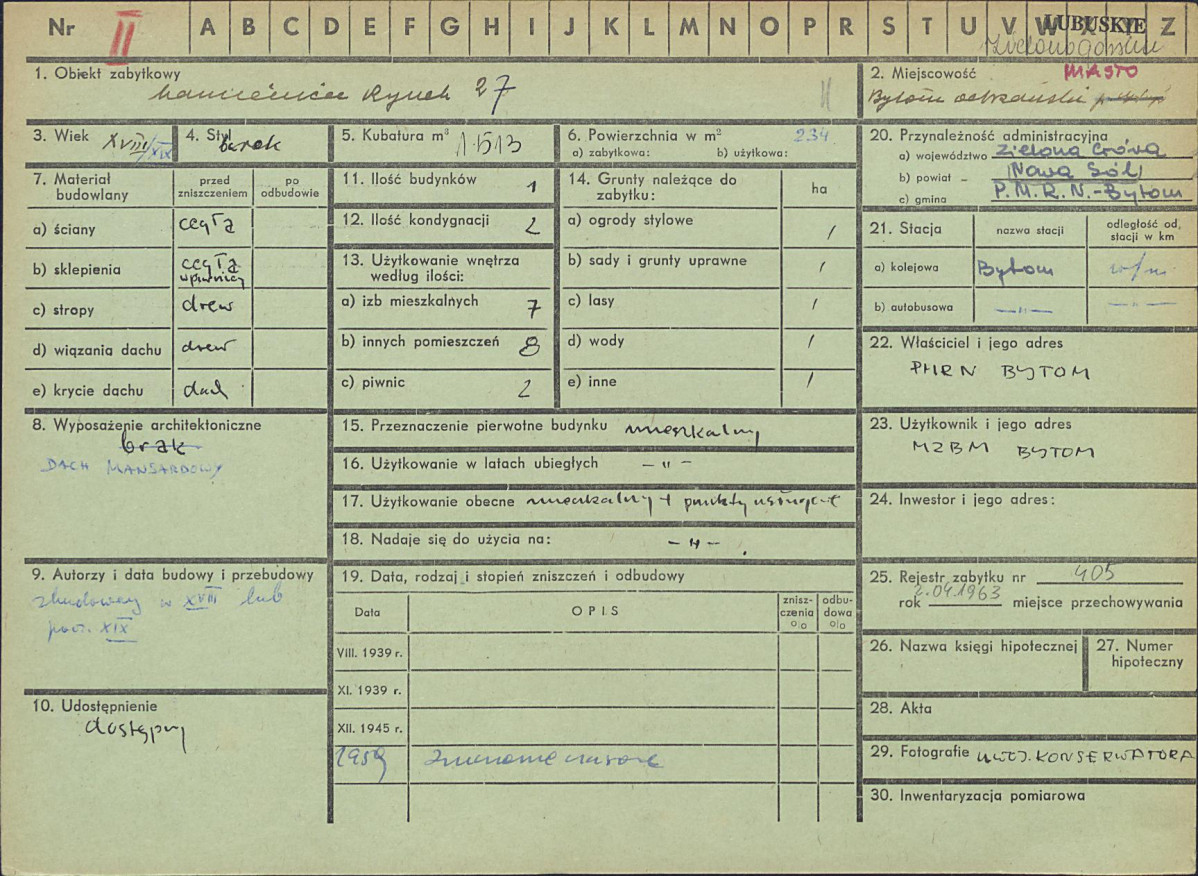 Nr II A B C D E F G H I J K L M N O P R S T U V W X Y Z
LUBUSKIE
MIASTO
1. Obiekt zabytkowy
kamienica Rynek 27
II
2. Miejscowość
Bytom odrzański
3. Wiek XVIII/XIX
4. Styl barok
5. Kubatura m³ 1.513
6. Powierzchnia w m² 234
a) zabytkowa: b) użytkowa:
7. Materiał budowlany
przed zniszczeniem
po odbudowie
a) ściany cegła
b) sklepienia cegła w piwnicy
c) stropy drew
d) wiązania dachu drew
e) krycie dachu dach
8. Wyposażenie architektoniczne
brak
DACH MANSARDOWY
9. Autorzy i data budowy i przebudowy
zbudowany w XVIII lub
pocz. XIX
10. Udostępnienie
dostępny
11. Ilość budynków 1
12. Ilość kondygnacji 2
13. Użytkowanie wnętrza według ilości:
a) izb mieszkalnych 7
b) innych pomieszczeń 8
c) piwnic 2
14. Grunty należące do zabytku:
ha
a) ogrody stylowe /
b) sady i grunty uprawne /
c) lasy /
d) wody /
e) inne /
15. Przeznaczenie pierwotne budynku mieszkalny
16. Użytkowanie w latach ubiegłych – " –
17. Użytkowanie obecne mieszkalny + punkty
18. Nadaje się do użycia na: – " –
19. Data, rodzaj i stopień zniszczeń i odbudowy
Data
OPIS
zniszczenia o/o
odbudowa o/o
VIII. 1939 r.
XI. 1939 r.
XII. 1945 r.
1959
20. Przynależność administracyjna
a) województwo Zielona Góra
b) powiat – Nowa Sól
c) gmina P.M.R.N.-Bytom
21. Stacja
nazwa stacji
odległość od stacji w km
a) kolejowa Bytom w/m
b) autobusowa –"– –"–
22. Właściciel i jego adres
PMRN BYTOM
23. Użytkownik i jego adres
MZBM BYTOM
24. Inwestor i jego adres:
25. Rejestr zabytku nr 405
rok 2.04.1963 miejsce przechowywania
26. Nazwa księgi hipotecznej
27. Numer hipoteczny
28. Akta
29. Fotografie WOJ. KONSERWATORA
30. Inwentaryzacja pomiarowa